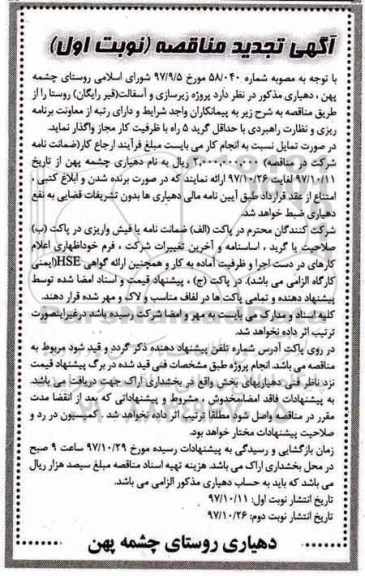 آگهی تجدید مناقصه (نوبت اول)
با توجه به مصوبه شماره ۵۸/۰۴۰ مورخ ۹۷/۹/۵ شورای اسلامی روستای چشمه
پهن ، دهیاری مذکور در نظر دارد پروژه زیرسازی و آسفالت(قیر رایگان) روستا را از
طریق مناقصه به شرح زیر به پیمانکاران واجد شرایط و دارای رتبه از معاونت برنامه
ریزی و نظارت راهبردی با حداقل گرید ۵ راه با ظرفیت کار مجاز واگذار نماید.
در صورت تمایل نسبت به انجام کار می بایست مبلغ فرآیند ارجاع کار(ضمانت نامه
شرکت در مناقصه) ریال به نام دهیاری چشمه پهن از تاریخ
۹۷/۱۰/۱۱ لغایت ۹۷/۱۰/۲۶ ارائه نمایند که در صورت برنده شدن و ابلاغ کتبی ،
امتناع از عقد قرارداد طبق آیین نامه مالی دهیاری ها بدون تشریفات قضایی به نفع
دهیاری ضبط خواهد شد.
شرکت کنندگان محترم در پاکت (الف) ضمانت نامه یا فیش واریزی در پاکت (ب)
صلاحیت یا گرید ، اساسنامه و آخرین تغییرات شرکت ، فرم خوداظهاری اعلام
کارهای در دست اجرا و ظرفیت آماده به کار و همچنین ارائه گواهی HSE(ایمنی
کارگاه الزامی می باشد). در پاکت (ج) ، پیشنهاد قیمت و اسناد امضا شده توسط
پیشنهاد دهنده و تمامی پاکت ها در لفاف مناسب و لاک و مهر شده قرار دهند.
کلیه اسناد و مدارک می بایست به مهر و امضا شرکت رسیده باشد درغیراینصورت
ترتیب اثر داده نخواهد شد.
در روی پاکت آدرس شماره تلفن پیشنهاد دهنده، ذکر گردد و قید شود مربوط به
مناقصه می باشد. انجام پروژه طبق مشخصات فنی قید شده در برگ پیشنهاد قیمت
نزد ناظر فنی دهیاریهای بخش واقع در بخشداری اراک جهت دریافت می باشد.
به پیشنهادات فاقد امضا،مخدوش ، مشروط و پیشنهاداتی که بعد از انقضا مدت
مقرر در مناقصه واصل شود مطلقا ترتیب اثر داده نخواهد شد . کمیسیون در رد و
صلاحیت پیشنهادات مختار خواهد بود.
زمان بازگشایی و رسیدگی به پیشنهادات رسیده مورخ ۹۷/۱۰/۲۹ ساعت ۹ صبح
در محل بخشداری اراک می باشد. هزینه تهیه اسناد مناقصه مبلغ سیصد هزار ریال
می باشد که باید به حساب دهیاری مذکور الزامی می باشد.
تاریخ انتشار نوبت اول: ۹۷/۱۰/۱۱
تاریخ انتشار نوبت دوم: ۹۷/۱۰/۲۶
دهیاری روستای چشمه پهن